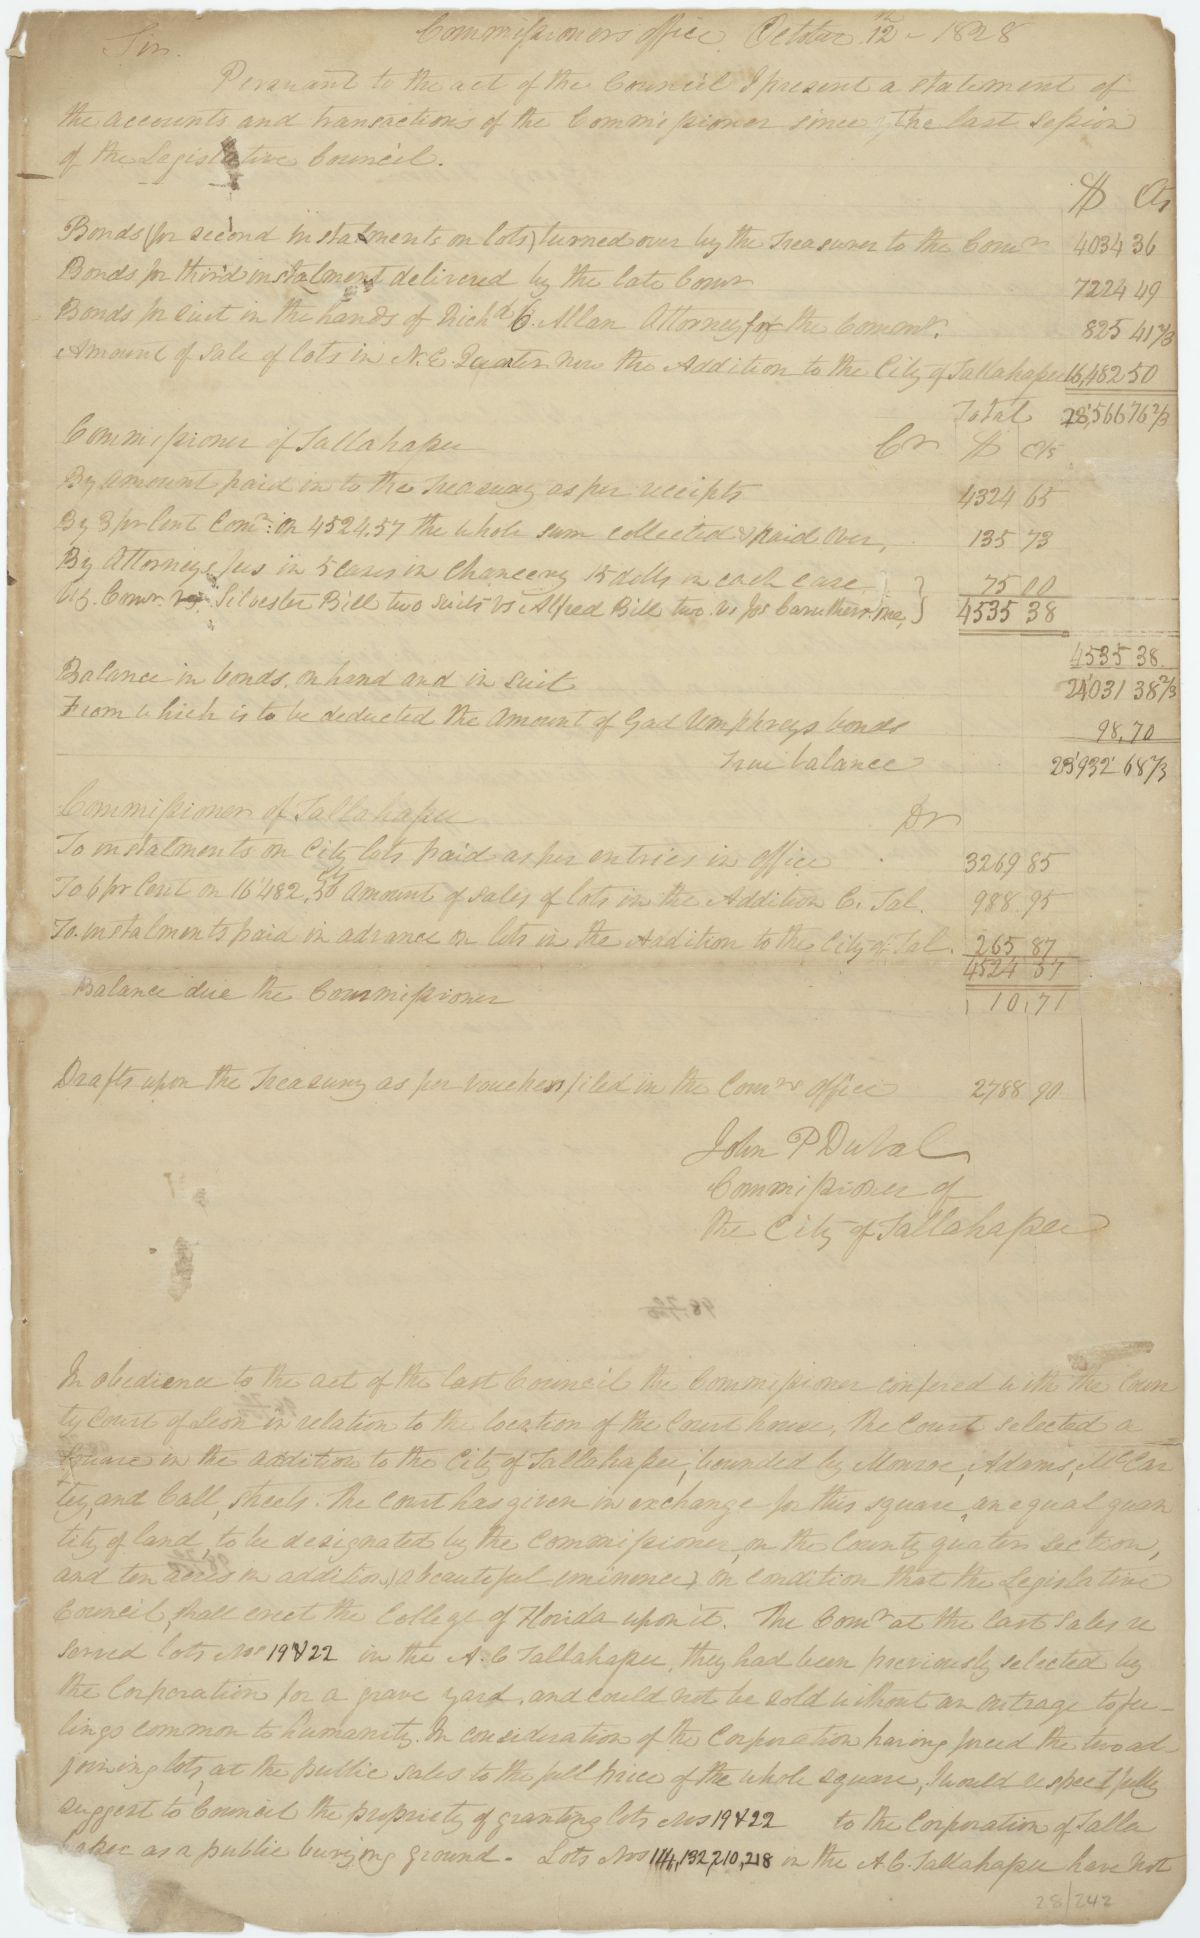 Commissioners office October 12th - 1828
Sir.
Persuant to the act of the Council I present a statement of
the accounts and transactions of the Commissioner since the last session
of the Legislative Council.
$ Cts
Bonds (for second instalments on lots) turned over by the Treasurer to the Comr 4034 36
Bonds for third instalment delivered by the late Comr 7224 49
Bonds for suit in the hands of Richd C. Allan Attorney for the Comonr. 825 41 2/3
Amount of sale of lots in N.E. Quarter now the Addition to the City of Tallahassee 16,482 50
Total 28,566 76 2/3
Commissioner of Tallahassee Cr $ Cts
By amount paid in to the Treasury as per receipts 4324 65
By 3 pr Cent Comn: on 4524.57 the whole sum collected & paid over, 135 73
By Attorneys fees in 5 cases in Chancery 15 dolls in each case } 75 00
Comr. vs Silvester Bill two suits vs Alfred Bill two vs Jos Caruthers one, } 4535 38
4535 38
Balance in bonds on hand and in suit 24'031 38 2/3
From which is to be deducted the amount of Gad Umphreys bonds 98,70
True balance 23'932 68 2/3
Commissioner of Tallahassee Dr
To instalments on City lots paid as per entries in office 3269 85
To 6 pr Cent on 16'482,50 amount of sales of lots in the Addition C. Tal. 988 95
To instalments paid in advance on lots in the Addition to the City of Tal. 265 87
4524 57
Balance due the Commissioner 10,71
Drafts upon the Treasury as per vouchers filed in the Comrs office 2788 90
John P Duval
Commissioner of
the City of Tallahassee
98.70
In obedience to the act of the last Council the Commissioner confered with the Coun
ty Court of Leon in relation to the location of the Court house, the Court selected a
square in the addition to the City of Tallahassee, bounded by Monroe, Adams, McCar
ty, and Call, streets. The Court has given in exchange for this square, an equal quan
tity of land, to be designated by the Commissioner, on the County quarter Section,
and ten acres in addition, (a beautiful eminence) on condition that the Legislative
Council, shall erect the College of Florida upon it. The Comr at the last sales re
served lots Nos 19 & 22 in the A. C Tallahassee, they had been previously selected by
the Corporation for a grave yard, and could not be sold without an outrage to fee-
lings common to humanity. In consideration of the Corporation having forced the two ad-
joining lots, at the public sales to the full price of the whole square, I would respectfully
suggest to Council the propriety of granting lots Nos 19 & 22 to the Corporation of Talla
hassee as a public burying ground. Lots Nos 114, 132, 210, 218 in the A. C. Tallahassee have not
28/242